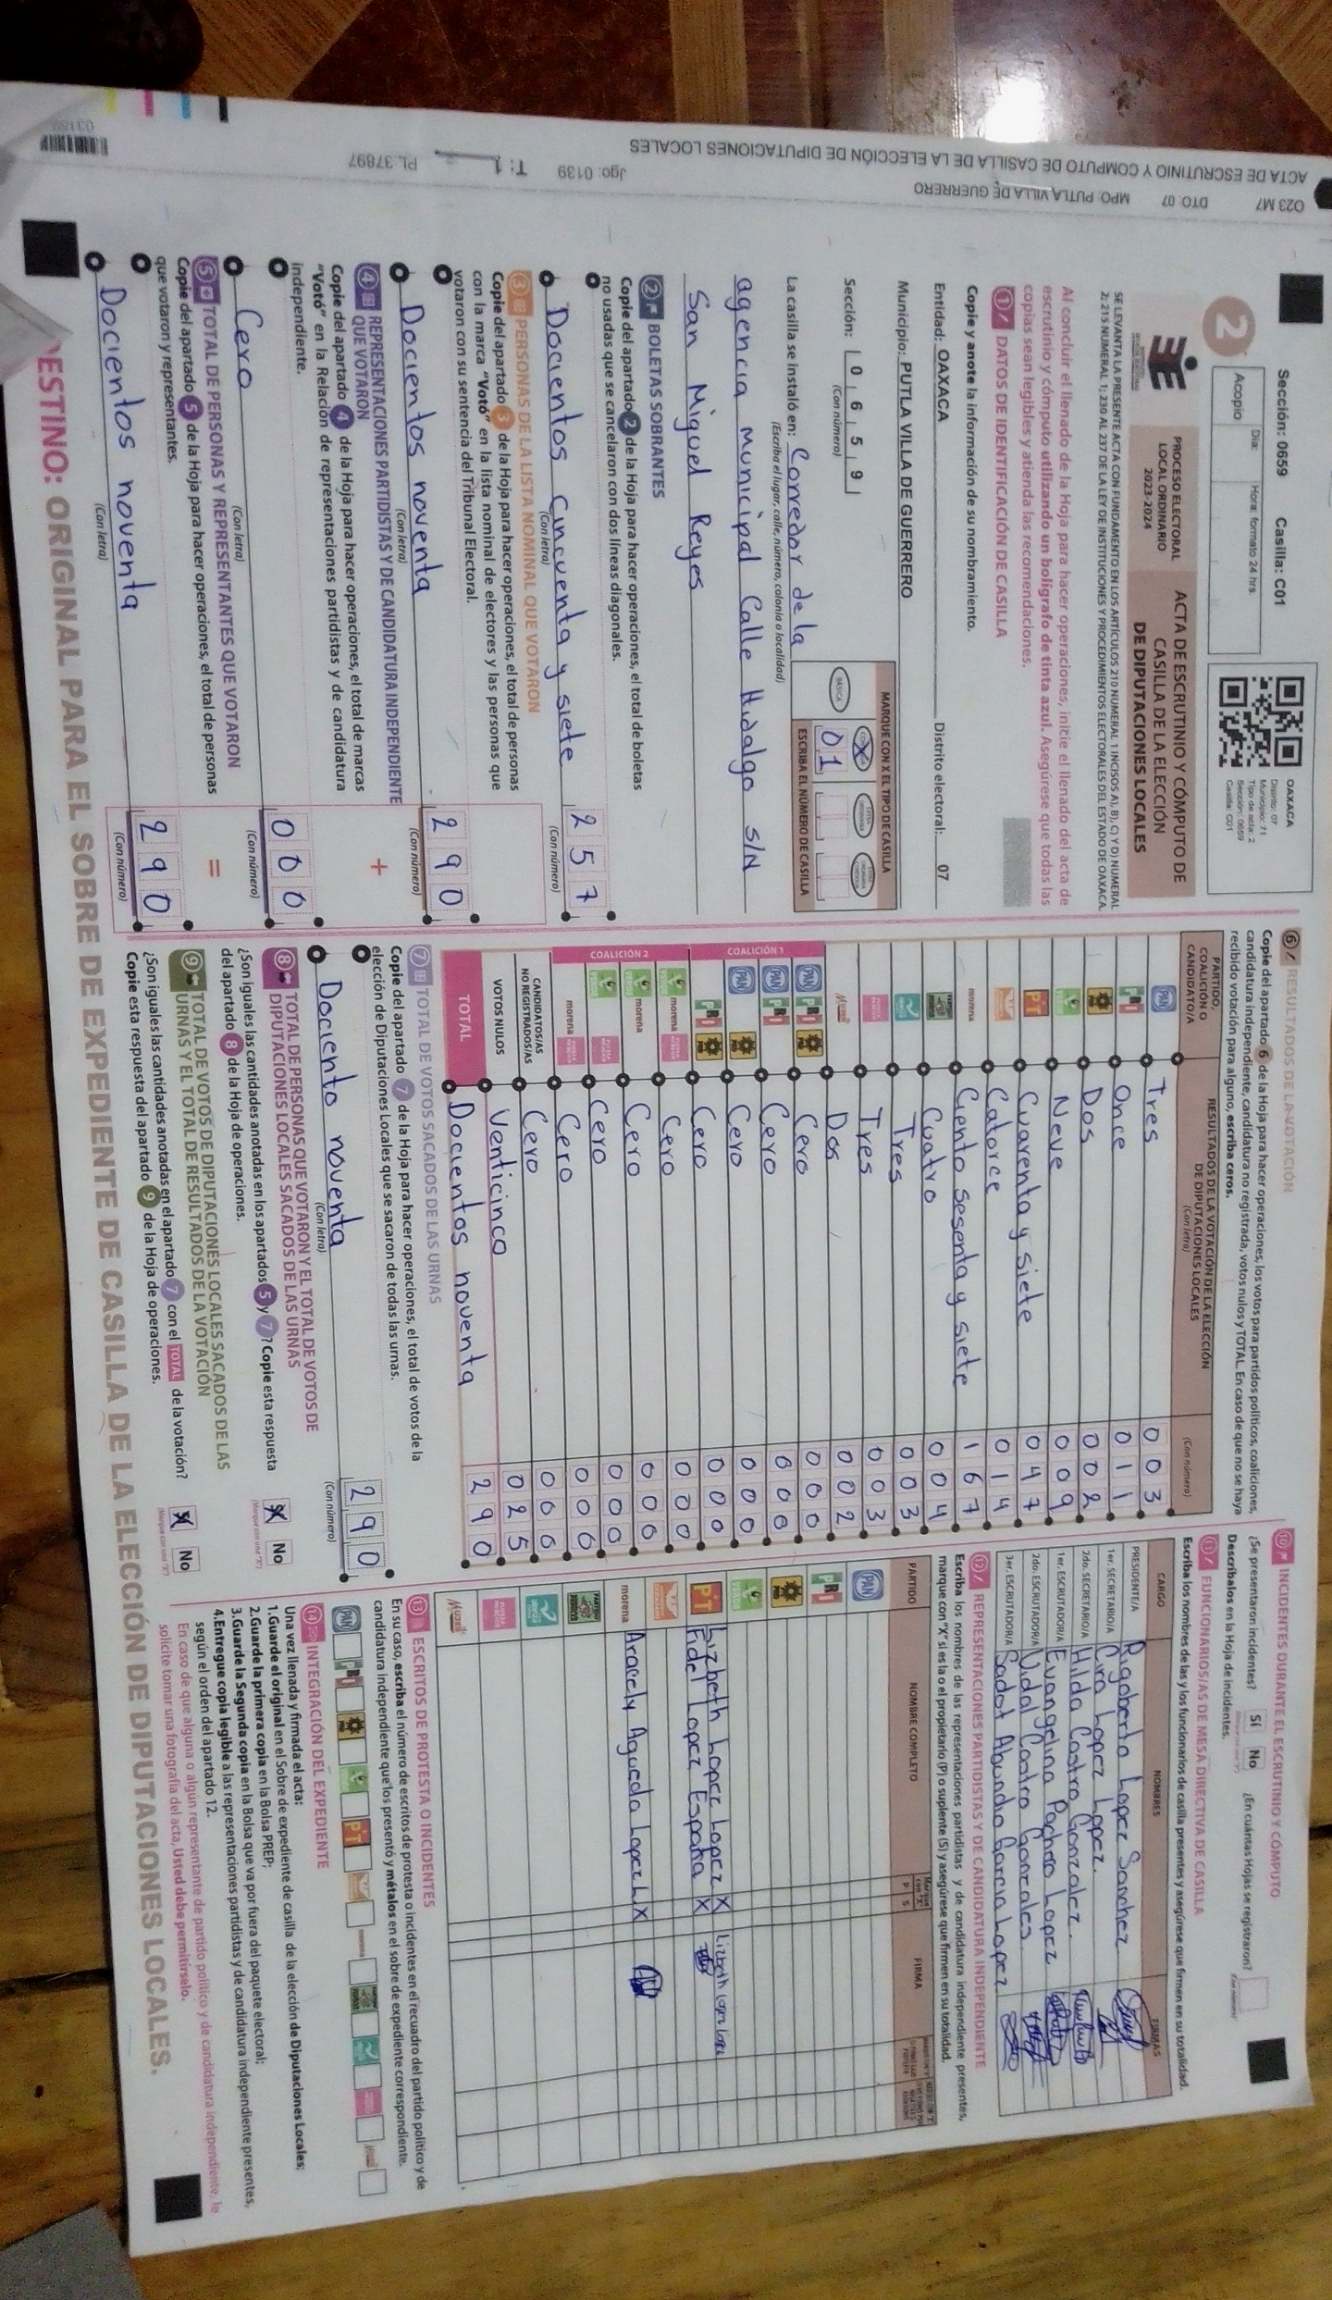 O23 M7
DTO. 07
MPO. PUTLA VILLA DE GUERRERO
Jgo: 0139
T: 1
PL. 37897
ACTA DE ESCRUTINIO Y CÓMPUTO DE CASILLA DE LA ELECCIÓN DE DIPUTACIONES LOCALES
Sección: 0659 Casilla: C01
Día: Hora: formato 24 hrs.
Acopio
2
OAXACA
Distrito: 07
Municipio: 71
Tipo de acta: 2
Sección: 0659
Casilla: C01
PROCESO ELECTORAL
LOCAL ORDINARIO
2023-2024
ACTA DE ESCRUTINIO Y CÓMPUTO DE
CASILLA DE LA ELECCIÓN
DE DIPUTACIONES LOCALES
SE LEVANTA LA PRESENTE ACTA CON FUNDAMENTO EN LOS ARTÍCULOS 210 NUMERAL 1 INCISOS A), B), C) Y D) NUMERAL
2; 215 NUMERAL 1; 230 AL 237 DE LA LEY DE INSTITUCIONES Y PROCEDIMIENTOS ELECTORALES DEL ESTADO DE OAXACA.
Al concluir el llenado de la Hoja para hacer operaciones, inicie el llenado del acta de
escrutinio y cómputo utilizando un bolígrafo de tinta azul. Asegúrese que todas las
copias sean legibles y atienda las recomendaciones.
1 DATOS DE IDENTIFICACIÓN DE CASILLA
Copie y anote la información de su nombramiento.
Entidad: OAXACA Distrito electoral: 07
Municipio: PUTLA VILLA DE GUERRERO
Sección: 0 6 5 9
(Con número)
MARQUE CON X EL TIPO DE CASILLA
BÁSICA X
ESCRIBA EL NÚMERO DE CASILLA
01
La casilla se instaló en: Corredor de la
(Escriba el lugar, calle, número, colonia o localidad)
agencia municipal Calle Hidalgo S/N
San Miguel Reyes
2 BOLETAS SOBRANTES
Copie del apartado 2 de la Hoja para hacer operaciones, el total de boletas
no usadas que se cancelaron con dos líneas diagonales.
Docientos cincuenta y siete 2 5 7
(Con letra) (Con número)
3 PERSONAS DE LA LISTA NOMINAL QUE VOTARON
Copie del apartado 3 de la Hoja para hacer operaciones, el total de personas
con la marca "Votó" en la lista nominal de electores y las personas que
votaron con su sentencia del Tribunal Electoral.
Docientos noventa 2 9 0
(Con letra) (Con número)
4 REPRESENTACIONES PARTIDISTAS Y DE CANDIDATURA INDEPENDIENTE
QUE VOTARON +
Copie del apartado 4 de la Hoja para hacer operaciones, el total de marcas
"Votó" en la Relación de representaciones partidistas y de candidatura
independiente.
Cero 0 0 0
(Con letra) (Con número)
5 TOTAL DE PERSONAS Y REPRESENTANTES QUE VOTARON =
Copie del apartado 5 de la Hoja para hacer operaciones, el total de personas
que votaron y representantes.
Docientos noventa 2 9 0
(Con letra) (Con número)
6 RESULTADOS DE LA VOTACIÓN
Copie del apartado 6 de la Hoja para hacer operaciones, los votos para partidos políticos, coaliciones,
candidatura independiente, candidatura no registrada, votos nulos y TOTAL. En caso de que no se haya
recibido votación para alguno, escriba ceros.
PARTIDO, COALICIÓN O CANDIDATO/A
RESULTADOS DE LA VOTACIÓN DE LA ELECCIÓN
DE DIPUTACIONES LOCALES
(Con letra) (Con número)
PAN Tres 0 0 3
PRI Once 0 1 1
PRD Dos 0 0 2
VERDE Neve 0 0 9
PT Cuarenta y siete 0 4 7
Catorce 0 1 4
morena Ciento sesenta y siete 1 6 7
Cuatro 0 0 4
Tres 0 0 3
Tres 0 0 3
Dos 0 0 2
COALICIÓN 1
PAN PRI PRD Cero 0 0 0
PAN PRI Cero 0 0 0
PAN PRD Cero 0 0 0
PRI PRD Cero 0 0 0
COALICIÓN 2
VERDE morena Cero 0 0 0
VERDE morena Cero 0 0 0
VERDE Cero 0 0 0
morena Cero 0 0 0
CANDIDATOS/AS NO REGISTRADOS/AS Cero 0 0 0
VOTOS NULOS Venticinco 0 2 5
TOTAL Docientos noventa 2 9 0
7 TOTAL DE VOTOS SACADOS DE LAS URNAS
Copie del apartado 7 de la Hoja para hacer operaciones, el total de votos de la
elección de Diputaciones Locales que se sacaron de todas las urnas.
Dociento noventa 2 9 0
(Con letra) (Con número)
8 TOTAL DE PERSONAS QUE VOTARON Y EL TOTAL DE VOTOS DE
DIPUTACIONES LOCALES SACADOS DE LAS URNAS
¿Son iguales las cantidades anotadas en los apartados 5 y 7? Copie esta respuesta
del apartado 8 de la Hoja de operaciones.
X No
9 TOTAL DE VOTOS DE DIPUTACIONES LOCALES SACADOS DE LAS
URNAS Y EL TOTAL DE RESULTADOS DE LA VOTACIÓN
¿Son iguales las cantidades anotadas en el apartado 7 con el TOTAL de la votación?
Copie esta respuesta del apartado 9 de la Hoja de operaciones.
X No
10 INCIDENTES DURANTE EL ESCRUTINIO Y CÓMPUTO
¿Se presentaron incidentes? Sí No ¿En cuántas Hojas se registraron?
Descríbalos en la Hoja de incidentes.
11 FUNCIONARIOS/AS DE MESA DIRECTIVA DE CASILLA
Escriba los nombres de las y los funcionarios de casilla presentes y asegúrese que firmen en su totalidad.
CARGO NOMBRES FIRMAS
PRESIDENTE/A Rigoberto Lopez Sanchez
1er. SECRETARIO/A Cira Lopez Lopez.
2do. SECRETARIO/A Hilda Castro Gonzalez.
1er. ESCRUTADOR/A Evangelina Pacheco Lopez
2do. ESCRUTADOR/A Vidal Castro Gonzales.
3er. ESCRUTADOR/A Sadot Abundio Garcia Lopez.
12 REPRESENTACIONES PARTIDISTAS Y DE CANDIDATURA INDEPENDIENTE
Escriba los nombres de las representaciones partidistas y de candidatura independiente presentes,
marque con "X" si es la o el propietario (P) o suplente (S) y asegúrese que firmen en su totalidad.
PARTIDO NOMBRE COMPLETO P S FIRMA
PAN
PRI
PRD
VERDE
PT Lizbeth Lopez Lopez X Lizbeth Lopez Lopez
Fidel Lopez España X
morena Aracely Agueda Lopez L X
13 ESCRITOS DE PROTESTA O INCIDENTES
En su caso, escriba el número de escritos de protesta o incidentes en el recuadro del partido político y de
candidatura independiente que los presentó y métalos en el sobre de expediente correspondiente.
14 INTEGRACIÓN DEL EXPEDIENTE
Una vez llenada y firmada el acta:
1.Guarde el original en el Sobre de expediente de casilla de la elección de Diputaciones Locales;
2.Guarde la primera copia en la Bolsa PREP;
3.Guarde la Segunda copia en la Bolsa que va por fuera del paquete electoral;
4.Entregue copia legible a las representaciones partidistas y de candidatura independiente presentes,
según el orden del apartado 12.
En caso de que alguna o algún representante de partido político y de candidatura independiente, le
solicite tomar una fotografía del acta, Usted debe permitírselo.
DESTINO: ORIGINAL PARA EL SOBRE DE EXPEDIENTE DE CASILLA DE LA ELECCIÓN DE DIPUTACIONES LOCALES.